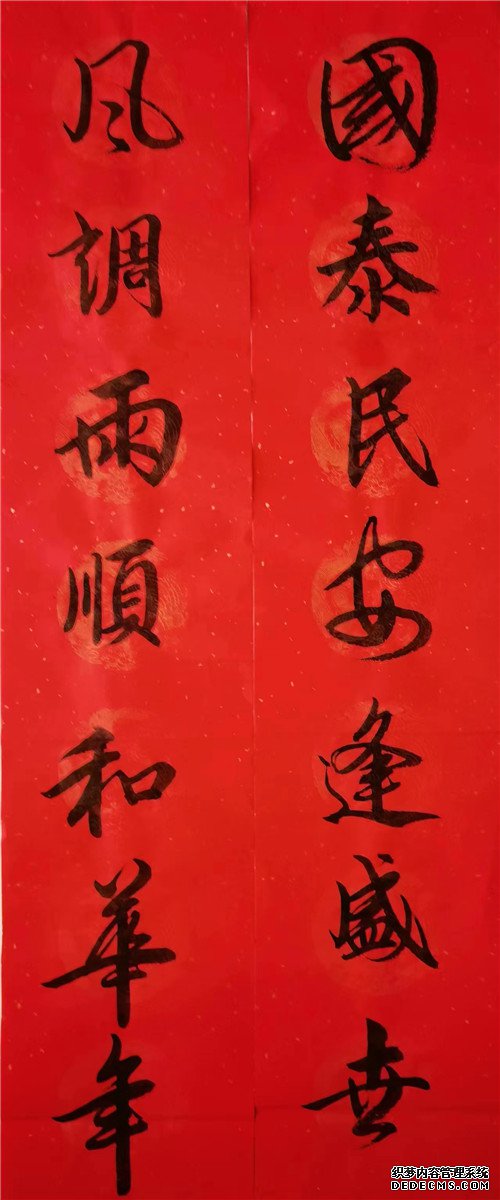 國泰民安逢盛世
风調雨順和華年
织梦内容管理系统
DEDECMS.COM